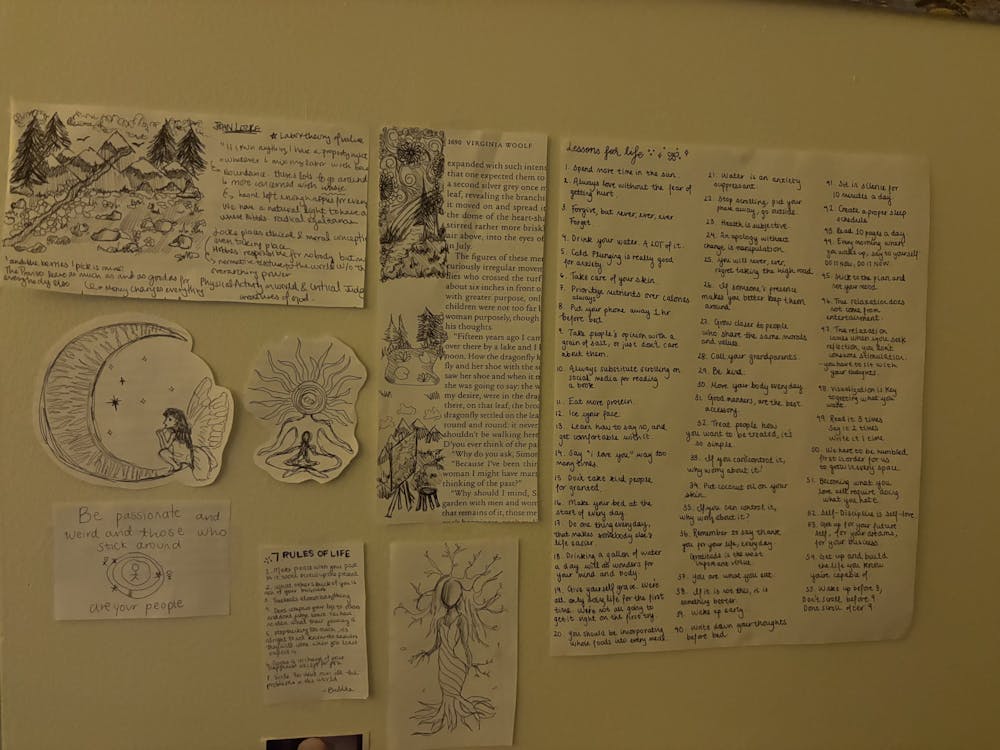 JOHN LOCKE
* Labor theory of value
"If I own anything I have a property in
abundance. there's lots to go around
& more concerned with usage
We have a natural right to have a
Locke places ethical & moral
even taking place
Hobbes responsible for nobody but me
"and the berries I pick is mine"
The Proviso leave as much as and as good as for
everybody else
Many changes everything
Physical Activity in world & Critical
1490 VIRGINIA WOOLF
expanded with such intens
that one expected them to
a second silver grey once m
leaf, revealing the branchi
it moved on and spread i
the dome of the heart-sha
stirred rather more briskl
air above, into the eyes of
in July.
The figures these me
curiously irregular movem
flies who crossed the turf
about six inches in front o
with greater purpose, onl
children were not too far b
woman purposely, though
his thoughts.
"Fifteen years ago I cam
over there by a lake and I b
noon. How the dragonfly k
fly and her shoe with the s
saw her shoe and when it m
she was going to say: the w
my desire, were in the drag
there, on that leaf, the broa
dragonfly settled on the lea
round and round: it never
shouldn't be walking here
D'you ever think of the pa
"Why do you ask, Simon
"Because I've been thin
woman I might have marr
thinking of the past?"
"Why should I mind, S
garden with men and wom
that remains of it, those me
Lessons for life
1. Spend more time in the sun.
2. Always love without the fear of
getting hurt.
3. Forgive, but never, ever, ever
Forget.
4. Drink your water. A LOT of it.
5. Cold Plunging is really good
for anxiety.
6. Take care of your skin.
7. Prioritize nutrients over calories
always.
8. Put your phone away 1 hr
before bed.
9. Take people's opinion with a
grain of salt, or just don't care
about them.
10. Always substitute scrolling on
social media for reading
a book.
11. Eat more protein.
12. Ice your face.
13. Learn how to say no, and
get comfortable with it.
14. Say "i love you" way too
many times.
15. Don't take kind people
for granted.
16. Make your bed at the
start of every day.
17. Do one thing everyday,
that makes somebody else's
life easier.
18. Drinking a gallon of water
a day will do wonders for
your mind and body.
19. Give yourself grace. We're
all only living life for the first
time. We're not all going to
get it right on the first try.
20. You should be incorporating
whole foods into every meal.
21. Water is an anxiety
suppressant.
22. Stop scrolling, put your
phone away, go outside.
23. Health is subjective.
24. An apology without
change is manipulation.
25. You will never, ever,
regret taking the high road.
26. If someone's presence
makes you better keep them
around.
27. Grow closer to people
who share the same morals
and values.
28. Call your grandparents.
29. Be kind.
30. Move your body everyday.
31. Good manners, are the best
accessory.
32. Treat people how
you want to be treated, it's
so simple.
33. If you can control it,
why worry about it?
34. Put coconut oil on your
skin.
35. If you can't control it,
why worry about it?
36. Remember to say thank
you for your life, everyday
Gratitude is the most
important virtue.
37. You are what you eat.
38. If it is not this, it is
something better.
39. Wake up early
40. Write down your thoughts
before bed.
41. Sit in silence for
10 minutes a day.
42. Create a proper sleep
schedule.
43. Read 10 pages a day.
44. Every morning when
you wake up, say to yourself
DO IT NOW. DO IT NOW.
45. Stick to the plan, and
not your mood.
46. True relaxation does
not come from
entertainment.
47. True relaxation
comes when you seek
reflection, you don't
consume stimulation,
you have to sit with
your thoughts.
48. Visualization is key
to getting what you
want.
49. Read it 3 times
Say it 2 times
Write it 1 time.
50. We have to be humbled
first in order for us
to grow in every space.
51. Becoming what you
love will require doing
what you hate.
52. Self-Discipline is self-love
53. Get up for your future
self, for your dreams,
for your business.
54. Get up and build
the life you know
you're capable of.
55. Wake up before 8,
Don't scroll before 9
Don't scroll after 9
Be passionate and
weird and those who
stick around
are your people
7 RULES OF LIFE
1. Make peace with your past
so it won't screw up the present
2. What others think of you is
none of your business
3. Time heals almost everything
4. Don't compare your life to others
and don't judge them. You have
no idea what their journey is
5. Stop thinking too much, it's
alright to not know the answers
they will come when you least
expect it
6. No one is in charge of your
happiness except for you
7. Smile. You don't own all the
problems in the world
- Buddha